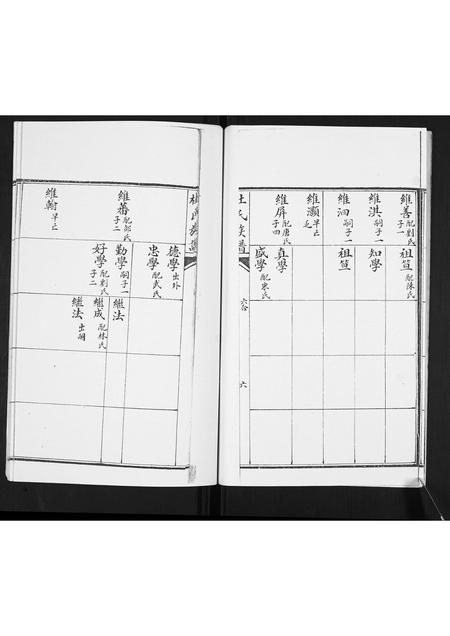 維善 配劉氏 子一
祖笪 配陳氏
維洪 嗣子一
知學
維泗 嗣子一
祖笪
維灝 早亡
維屏 配唐氏 子四
真學
盛學 配宋氏
杜氏族譜
六合
六
德學 出外
忠學 配武氏
維蕃 配郎氏 子二
勤學 嗣子一
繼法
好學 配劉氏 子二
繼成 配林氏
繼法 出嗣
維翰 早亡